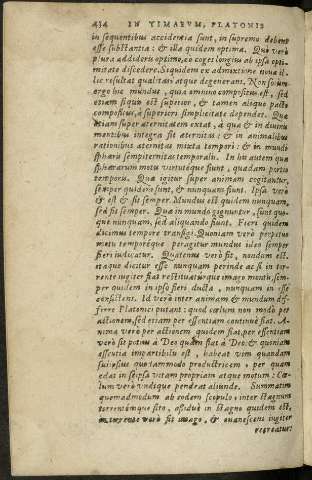 434 IN TIMAEVM, PLATONIS
in sequentibus accidentia sunt, in supremo debent
esse substantia: & illa quidem optima. Quo vero
plura addideris optimo, eo coges longius ab ipsa opti-
mitate discedere. Siquidem ex admixtione noua il-
lic resultat qualitas atque degenerans. Non solum
ergo hic mundus, qua omnino compositus est, sed
etiam siquid est superior, & tamen aliquo pacto
compositus, à superiori simplicitate dependet. Qua
etiam super aternitatem extat, à qua & in diuinis
mentibus integra sit aternitas: & in animalibus
rationibus aternitas mixta tempori: & in mundi
sphæris sempiternitas temporalis. In his autem qua
sphærarum motu virtuteque sunt, quadam portio
temporis. Quæ igitur super animam cogitantur,
semper quidem sunt, & nunquam fiunt. Ipsa verò
& est & fit semper. Mundus est quidem nunquam,
sed fit semper. Quæ in mundo gignuntur, sunt quo-
que nunquam, sed aliquando fiunt. Fieri quidem
dicimus tempore transigi. Quoniam verò perpetuo
motu temporéque peragitur mundus ideo semper
fieri iudicatur. Quatenus verò fit, nondum est.
itaque dicitur esse nunquam perinde ac si in tor-
rente iugiter fiat restituaturque imago montis, sem-
per quidem in ipso fieri ducta, nunquam in esse
consistens. Id verò inter animam & mundum dif-
ferre Platonici putant: quod cælum non modò per
actionem, sed etiam per essentiam continuè fiat. A-
nima verò per actionem quidem fiat, per essentiam
verò sit potius à Deo quàm fiat à Deo, & quoniam
essentia impartibilis est, habeat vim quandam
sui ipsius quodammodo productricem, per quam
edat in seipsa vitam propriam atque motum: Cæ-
lum verò vndique pendeat aliunde. Summatim
quemadmodum ab eodem scopulo, inter stagnum
torrentémque sito, assiduè in stagno quidem est,
in torrente verò fit imago, & euanescens iugiter
recreatur: